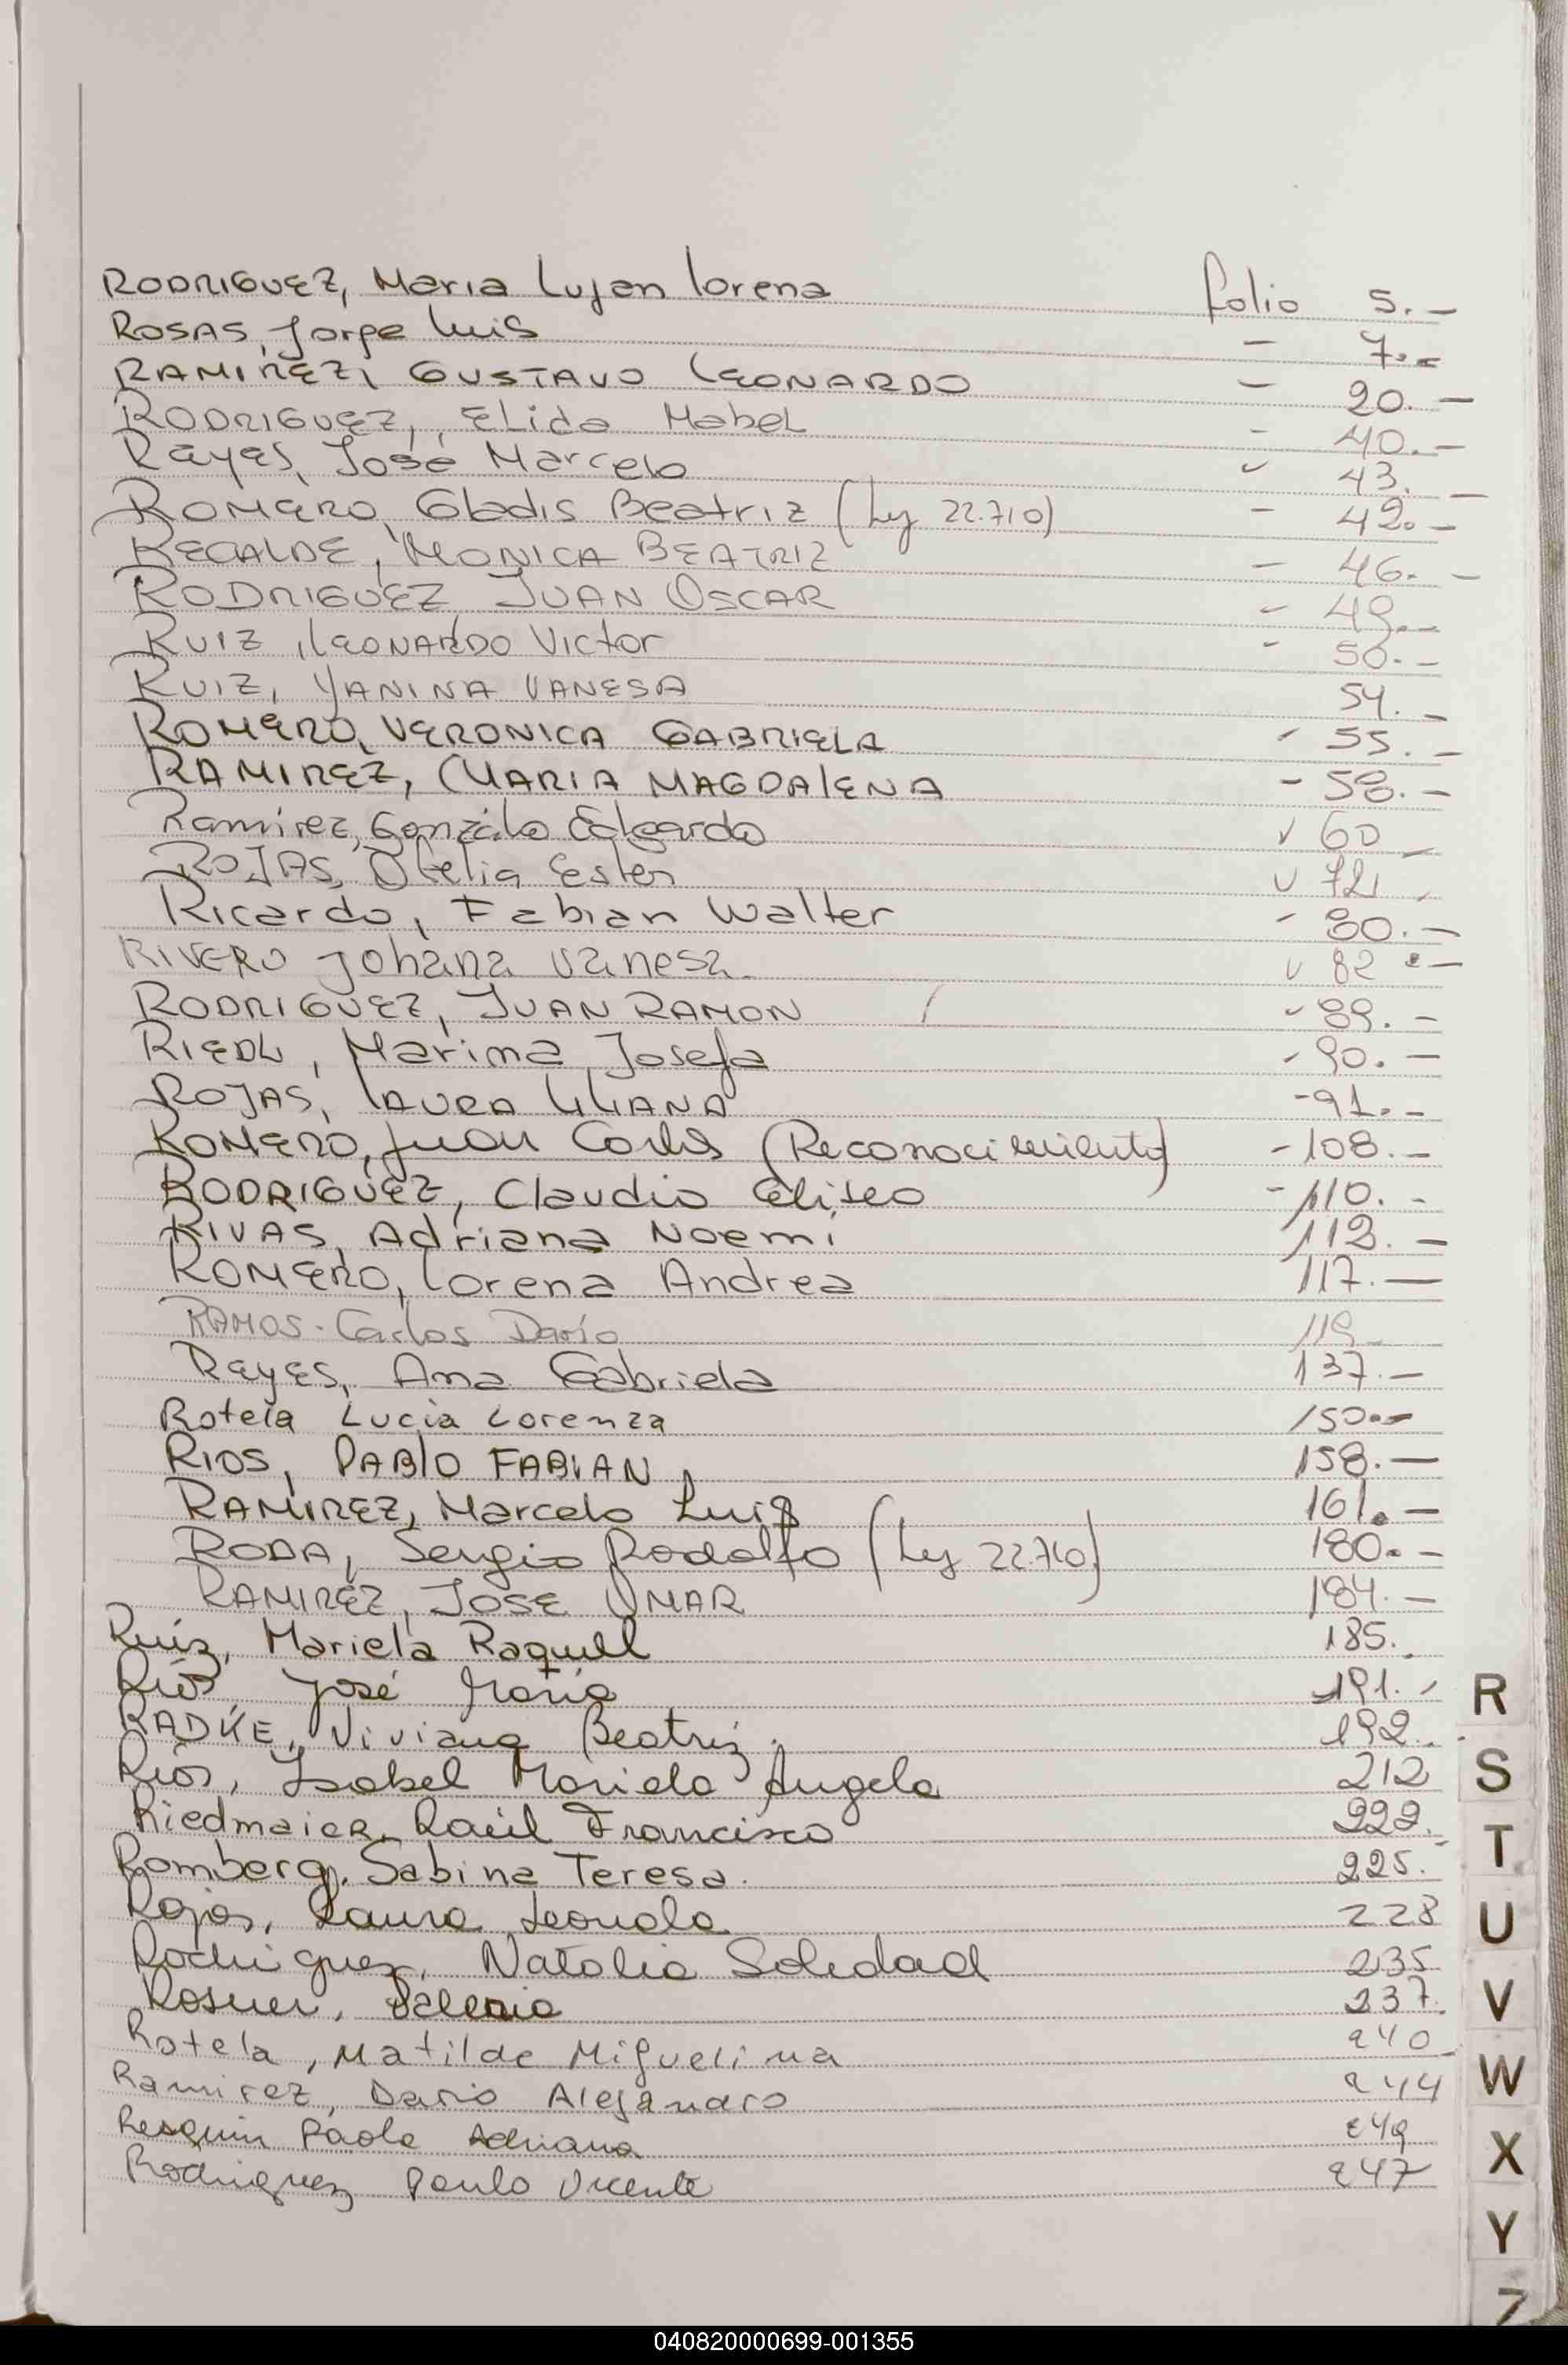 RODRIGUEZ, Maria Lujan Lorena folio 5.-
ROSAS, Jorge Luis - 7.-
RAMIREZ, GUSTAVO LEONARDO - 20.-
RODRIGUEZ, Elida Mabel - 40.-
Reyes, José Marcelo 43.-
ROMERO, Gladis Beatriz (Ley 22.710) - 42.-
RECALDE, MONICA BEATRIZ - 46.-
RODRIGUEZ JUAN OSCAR - 49.-
RUIZ, LEONARDO Victor - 50.-
RUIZ, YANINA VANESA 54.-
ROMERO, VERONICA GABRIELA - 55.-
RAMIREZ, MARIA MAGDALENA - 58.-
Ramirez, Gonzalo Edgardo 60
ROJAS, Otelia Ester
Ricardo, Fabian Walter - 80.-
RIVERO Johana Vanesa 82.-
RODRIGUEZ, JUAN RAMON - 89.-
RIEDL, Marina Josefa - 90.-
ROJAS, LAURA LILIANA - 91.-
ROMERO, Juan Carlos (Reconocimiento) - 108.-
RODRIGUEZ, Claudio Eliseo - 110.-
RIVAS, Adriana Noemi 112.-
ROMERO, Lorena Andrea 117.-
RAMOS. Carlos Darío 119
Reyes, Ana Gabriela 137.-
Rotela Lucia Lorenza 150.-
RIOS, PABLO FABIAN 158.-
RAMIREZ, Marcelo Luis 161.-
RODA, Sergio Rodolfo (Ley 22.710) 180.-
RAMIREZ, JOSE OMAR 184.-
Ruiz, Mariela Raquel 185.
Ríos, José María 191.-
RADKE, Viviana Beatriz. 192.
Ríos, Isabel Mariela Angela 212
Riedmaier, Raúl Francisco 222.
Romberg, Sabina Teresa. 225.
Rojas, Laura Leonola 228
Rodriguez, Natalia Soledad 235
Rosner, Valeria 237.
Rotela, Matilde Miguelina 240
Ramirez, Dario Alejandro 244
Resquin Paola Adriana 249
Rodriguez Paulo Vicente 247
R
S
T
U
V
W
X
Y
Z
040820000699-001355